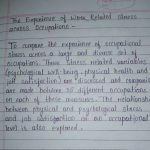 The Experience of Work Related stress
across Occupations:-
To compare the experience of occupational
stress across a large and diverse set of
occupations. Three stress related variables
(psychological well being, physical health and
job satisfaction) are discussed and comparisons
are made between 26 different occupations
on each of these measures. The relationship
between physical and psychological stress
and job satisfaction at an occupational
level is also explored.